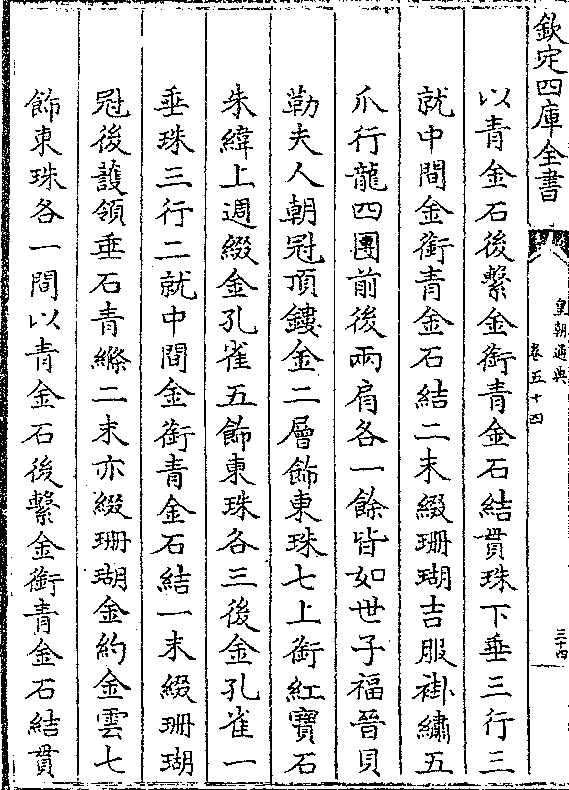 欽定四庫全書
皇朝通典
卷五十四
三十四
以青金石後繫金銜青金石結貫珠下垂三行三
就中間金銜青金石結二末綴珊瑚吉服褂繡五
爪行龍四團前後兩肩各一餘皆如世子福晉貝
勒夫人朝冠頂鏤金二層飾東珠七上銜紅寶石
朱緯上週綴金孔雀五飾東珠各三後金孔雀一
垂珠三行二就中間金銜青金石結一末綴珊瑚
冠後護領垂石青絛二末亦綴珊瑚金約金雲七
飾東珠各一間以青金石後繫金銜青金石結貫